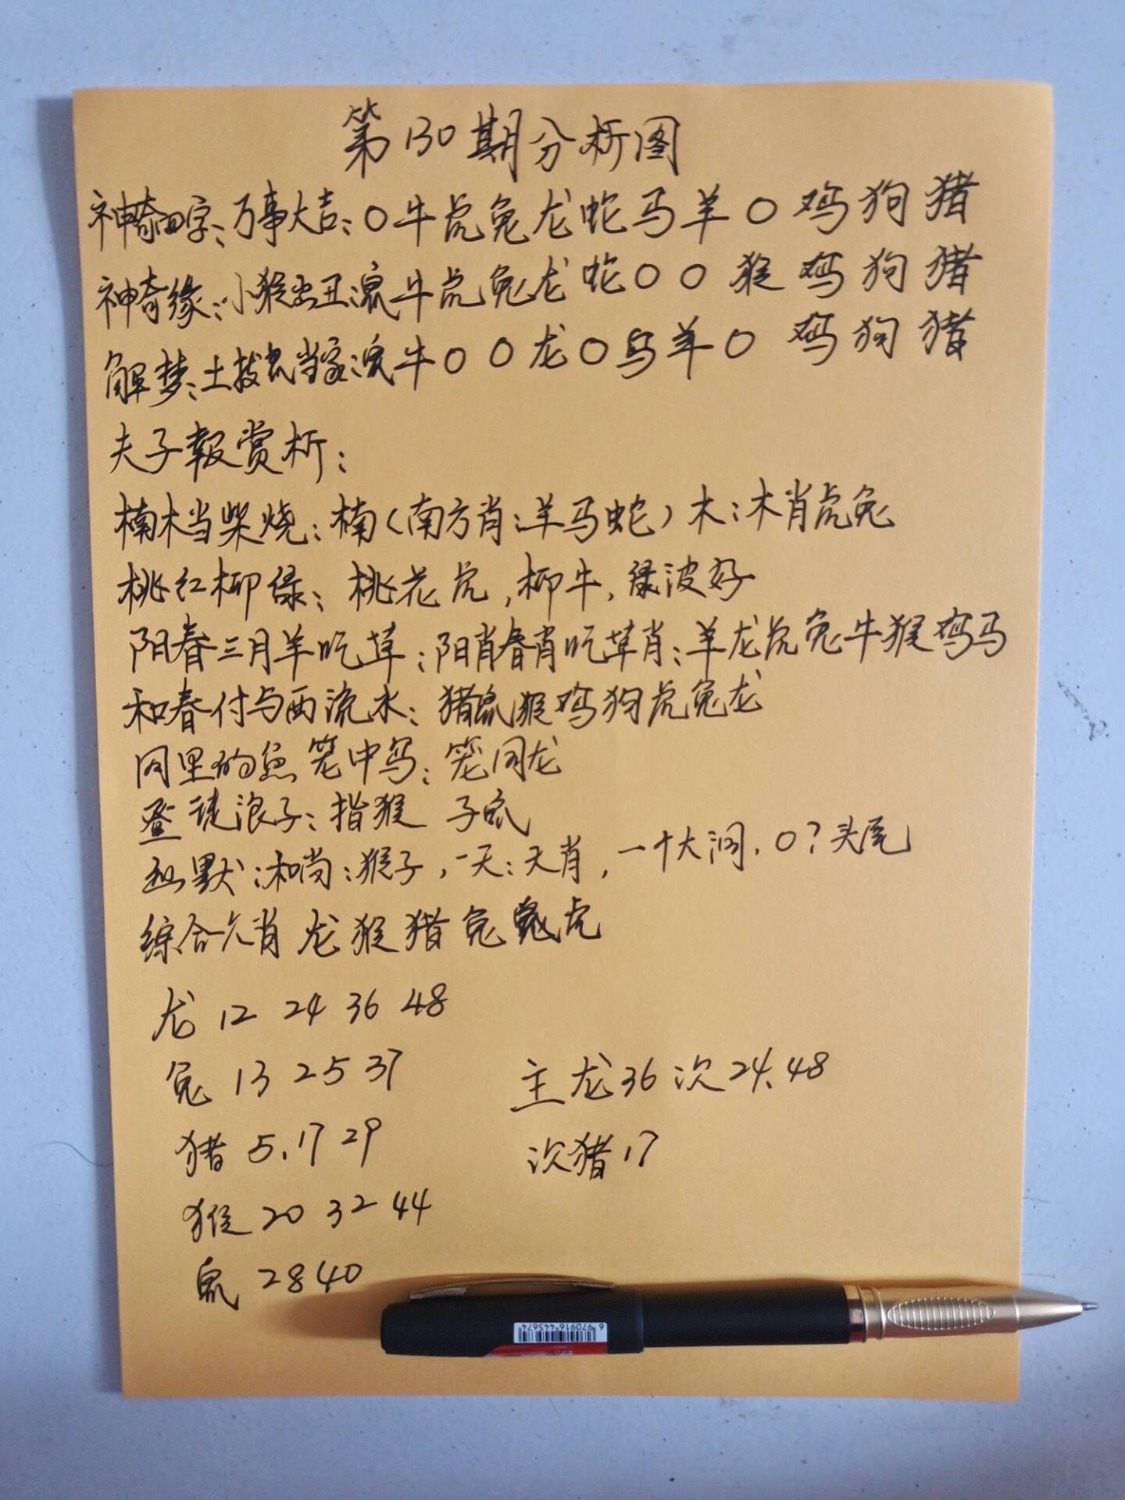 第130期分析图
神奇四字:万事大吉:O牛虎兔龙蛇马羊O鸡狗猪
神奇缘:小猴出丑:鼠牛虎兔龙蛇OO猴鸡狗猪
解梦:土拨鼠当家:鼠牛OO龙O马羊O鸡狗猪
夫子报赏析:
楠木当柴烧:楠(南方肖:羊马蛇)木:木肖虎兔
桃红柳绿:桃花虎,柳牛,绿波好
阳春三月羊吃草:阳肖春肖吃草肖:羊龙虎兔牛猴鸡马
和春付与西流水:猪鼠猴鸡狗虎兔龙
网里的鱼笼中鸟:笼同龙
登徒浪子:指猴 子鼠
幽默:和尚:猴子,一天:天肖,一个大洞.0?头尾
综合六肖龙猴猪兔鼠虎
龙 12 24 36 48
兔 13 25 37
主龙36次24.48
猪 5.17 29
次猪17
猴 20 32 44
鼠 28 40
6 970916 445674